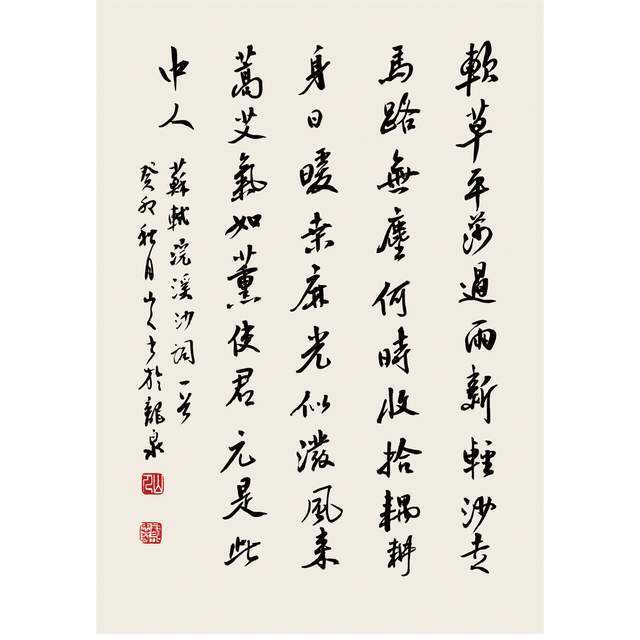 軟草平莎過雨新輕沙走
馬路無塵何時收拾耦耕
身日暖桑麻光似潑風來
蒿艾氣如薰使君元是此
中人
蘇軾浣溪沙詞一首
癸卯秋月山人書於龍泉